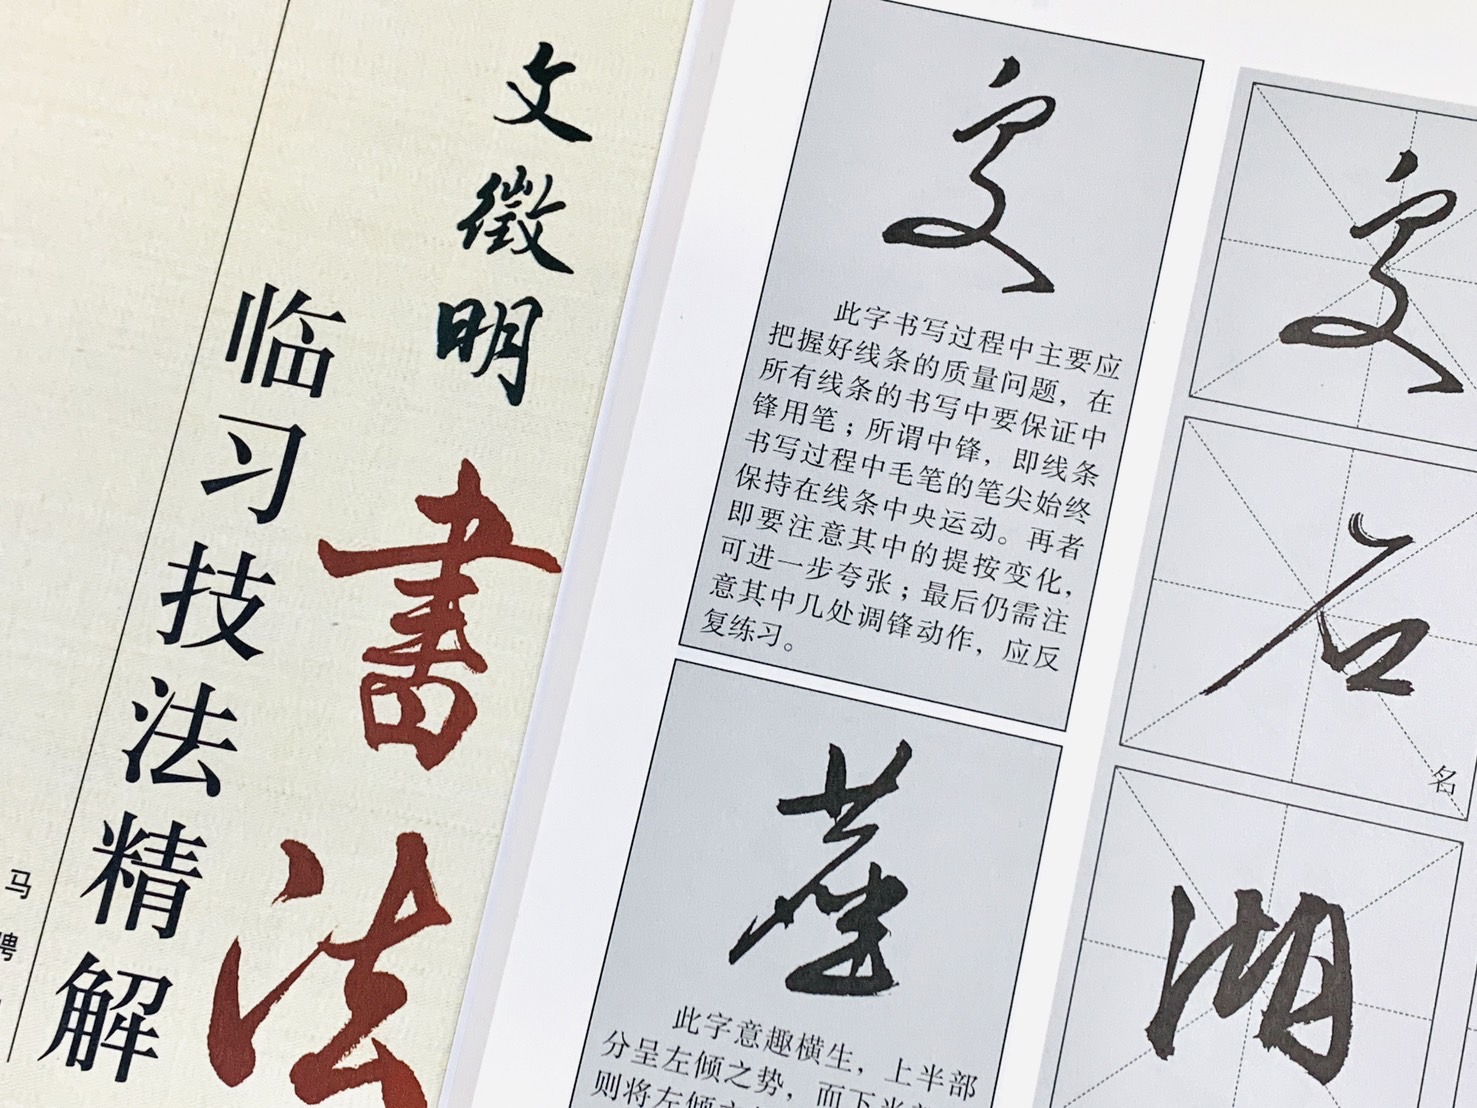 文徵明
書法
临习技法精解
马
聘
此字书写过程中主要应
把握好线条的质量问题，在
所有线条的书写中要保证中
锋用笔；所谓中锋，即线条
书写过程中毛笔的笔尖始终
保持在线条中央运动。再者
即要注意其中的提按变化，
可进一步夸张；最后仍需注
意其中几处调锋动作，应反
复练习。
此字意趣横生，上半部
分呈左倾之势，而下半
则将左倾
名
名
湖